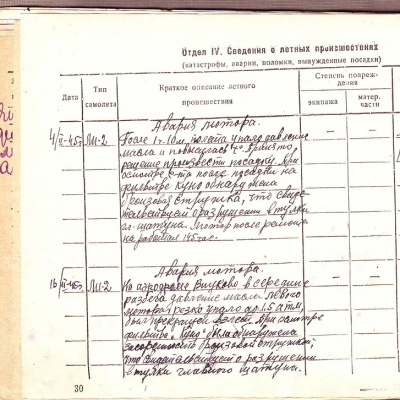 Отдел IV. Сведения о летных происшествиях
(катастрофы, аварии, поломки, вынужденные посадки)
Дата
Тип самолета
Краткое описание летного происшествия
Степень повреждения
экипажа
матер. части
Авария мотора.
4/II-45г. Ли-2. После 1 ч. 10 м. полета упало давление
масла и повысилась t° принято
решение произвести посадку. При
осмотре с-та после посадки на
фильтре куно обнаружена
бронзовая стружка, что свиде-
тельствует о разрушении втулки
гл. шатуна. Мотор после ремонта
наработал 145 час.
Авария мотора.
16/II-45г. Ли-2. На аэродроме Внуково в середине
разбега давление масла левого
мотора резко упало до 1.5 атм,
был прекращен взлет. При осмотре
фильтра "Куно" была обнаружена
засоренность бронзовой стружкой,
что свидетельствует о разрушении
втулки главного шатуна.
30